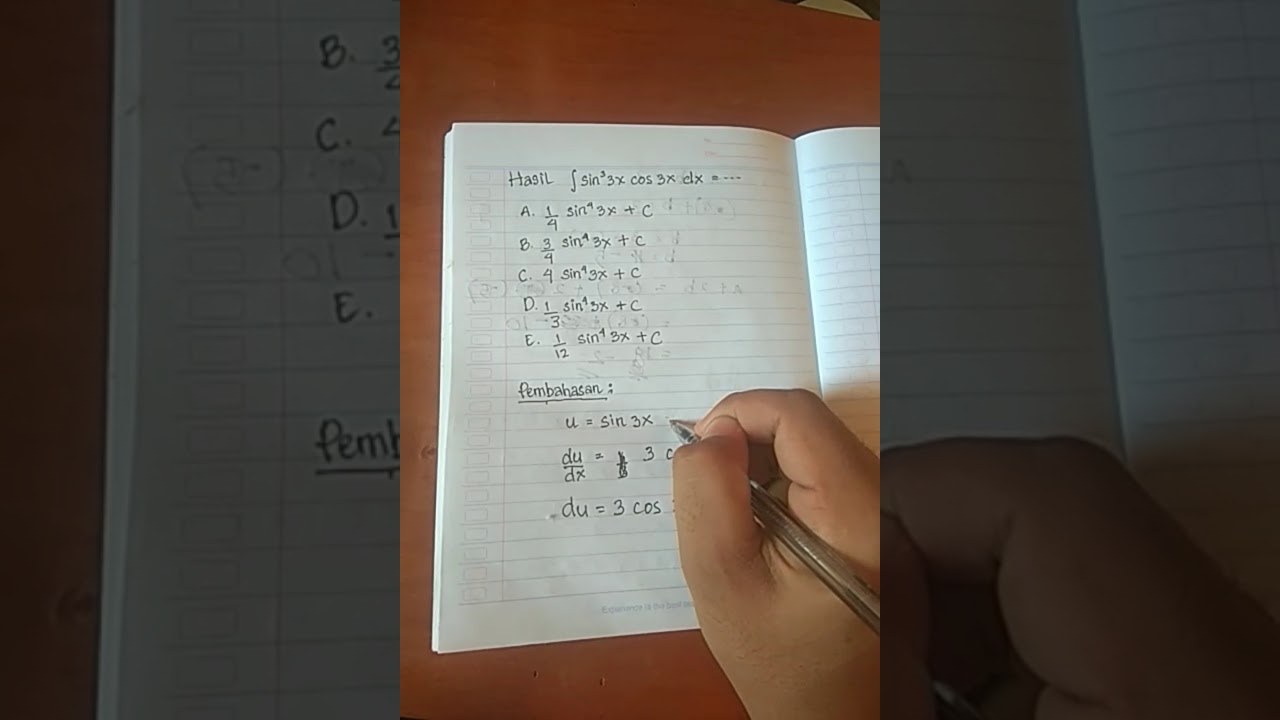 Hasil ∫ sin³3x cos 3x dx = ...
A. 1/4 sin⁴3x + C
B. 3/4 sin⁴3x + C
C. 4 sin⁴3x + C
D. 1/3 sin⁴3x + C
E. 1/12 sin⁴3x + C
Pembahasan :
u = sin 3x
du/dx = 3 c
du = 3 cos
Experience is the best